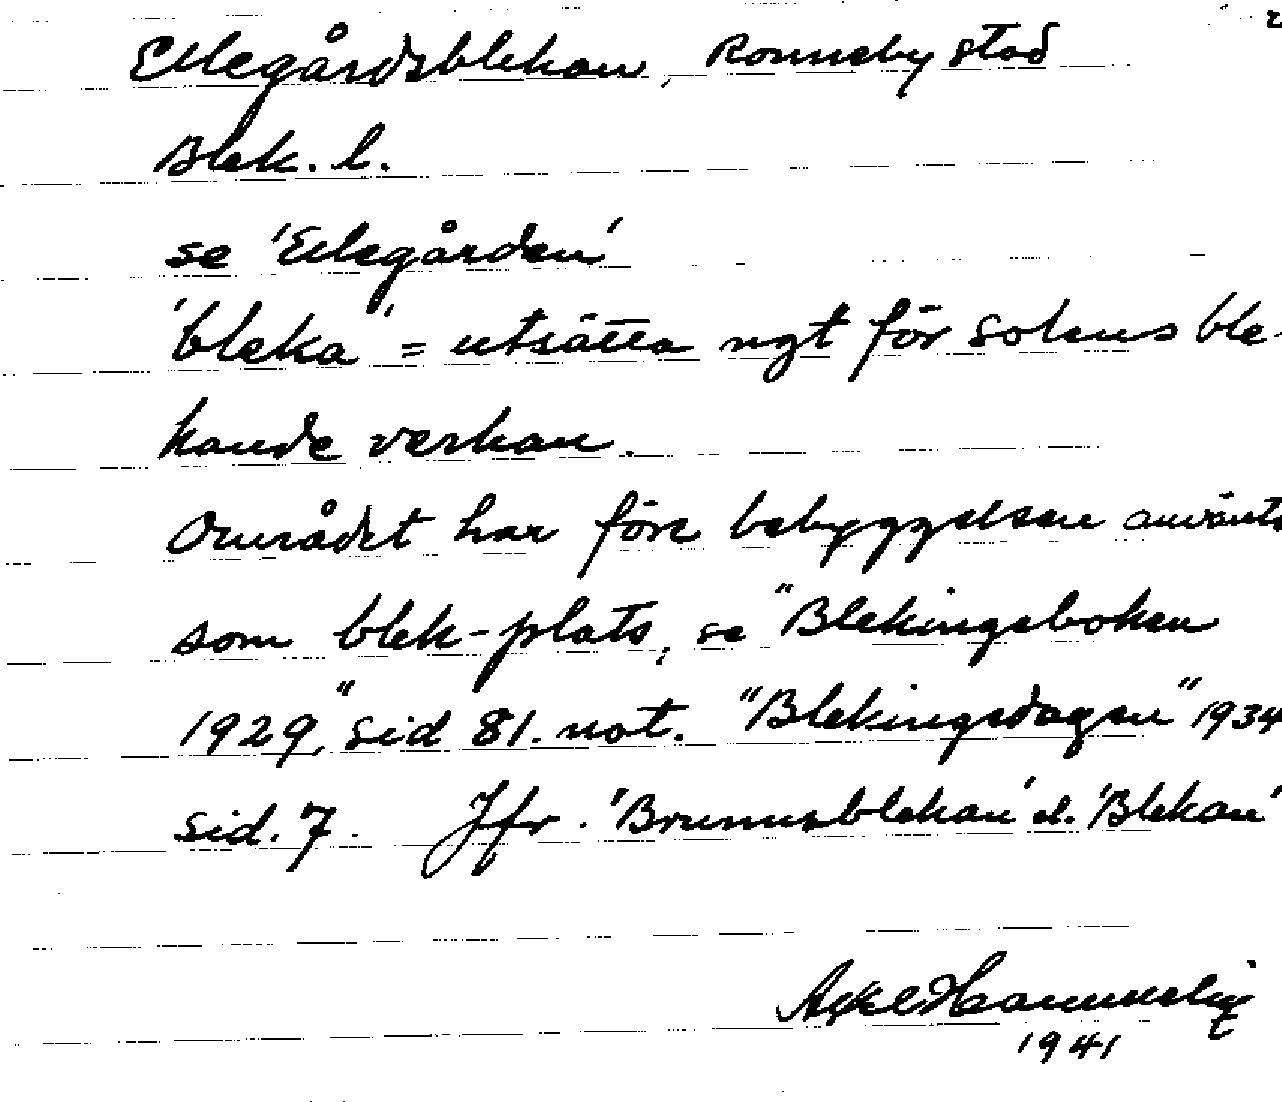 Ellegårdsblekan, Ronneby stad
Blek. l.
se 'Ellegården'
'bleka' = utsätta ngt för solens ble-
kande verkan.
Området har före bebyggelsen använts
som blek-plats, se "Blekingeboken
1929," sid 81. not. "Blekingedagen" 1934
sid. 7. Jfr. 'Brunnsblekan' el. 'Blekan'
Axel
1941